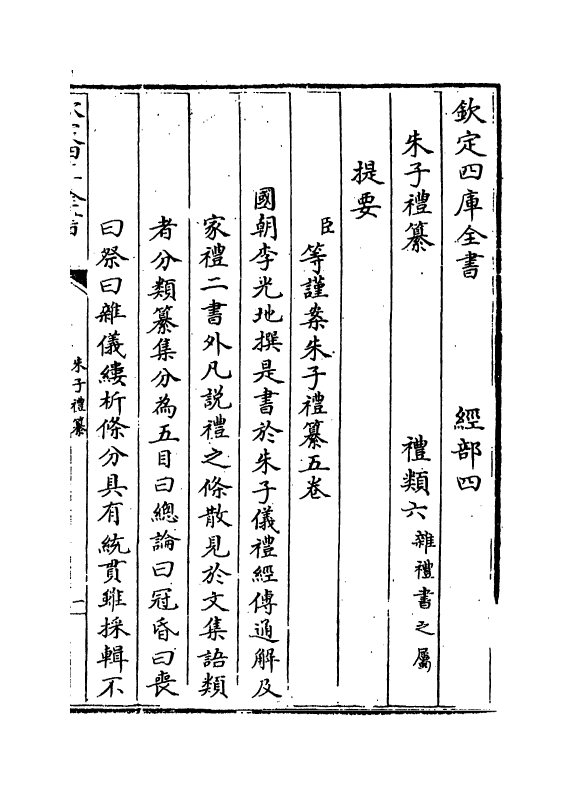 欽定四庫全書　經部四
朱子禮纂　禮類六雜禮書之屬
提要
臣等謹案朱子禮纂五卷
國朝李光地撰是書於朱子儀禮經傳通解及
家禮二書外凡説禮之條散見於文集語類
者分類纂集分為五目曰總論曰冠昏曰喪
曰祭曰雜儀縷析條分具有統貫雖採輯不
朱子禮纂